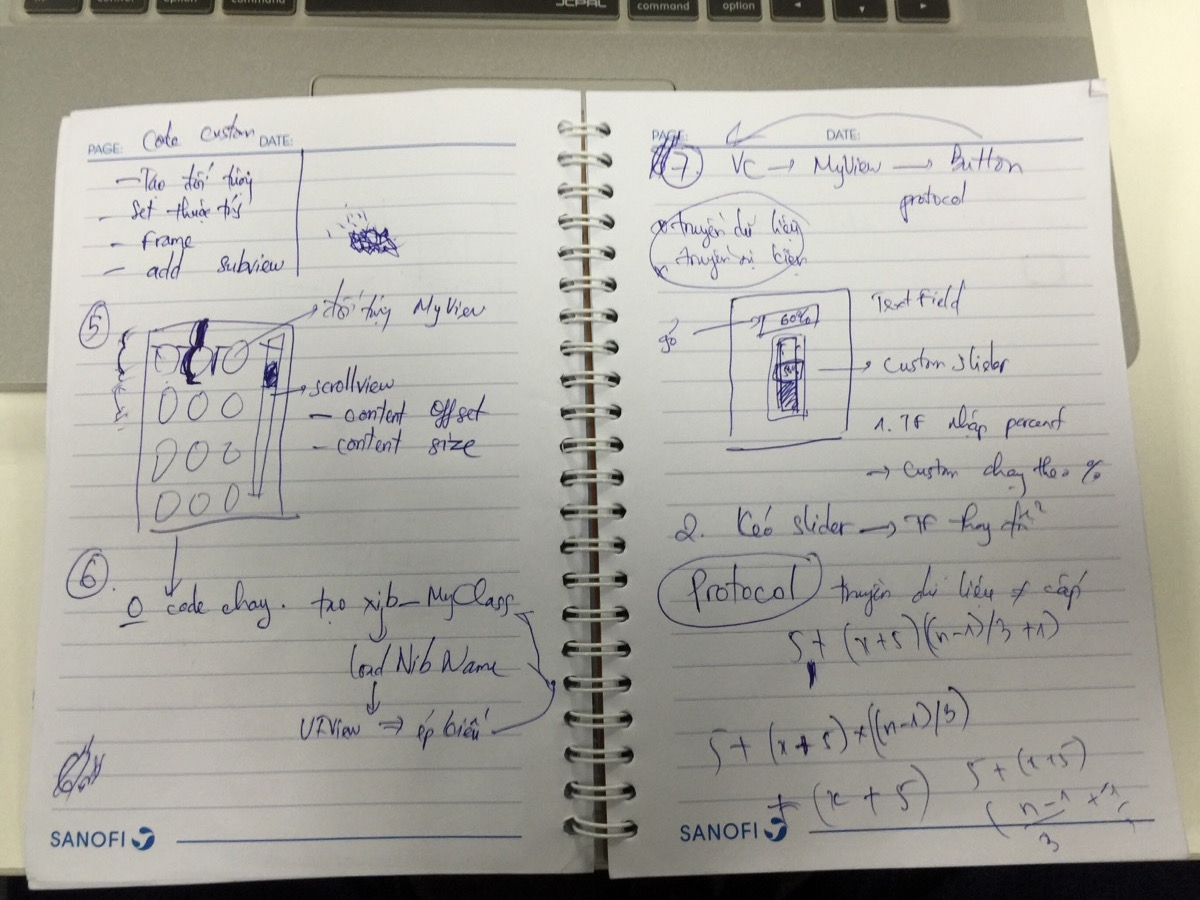 command
option
JCPAL
command
option
PAGE:
Code custom
DATE:
- Tạo đối tượng
- Set thuộc tính
- Frame
- add subview
5
đối tượng MyView
scrollview
- content offset
- content size
6
0 code chay. tạo xib_MyClass
load Nib Name
UIView ⇒ ép kiểu
SANOFI
PAGE:
DATE:
7. VC → MyView → Button
protocol
truyền dữ liệu
truyền sự kiện
Text Field
60%
số
50%
→ Custom slider
1. TF nhập percent
→ Custom chạy theo %
2. Kéo slider → TF thay đổi
Protocol truyền dữ liệu ≠ cấp
5 + (x+5)((n-1)/3 + 1)
5 + (x+5) * ((n-1)/3)
+ (x + 5)
5 + (x+5)
(n-1 + 1)
3
SANOFI